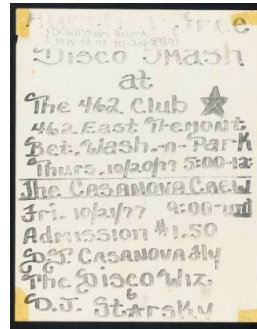 free
Disco Smash
at
The 462 Club
462 East Tremont
Bet. Wash-n-Park
Thurs. 10/20/77 5:00-12:
The Casanova Crew
Fri. 10/21/77 9:00-
Admission $1.50
D.J. Casanova Fly
The Disco Wiz.
&
D.J. Starsky